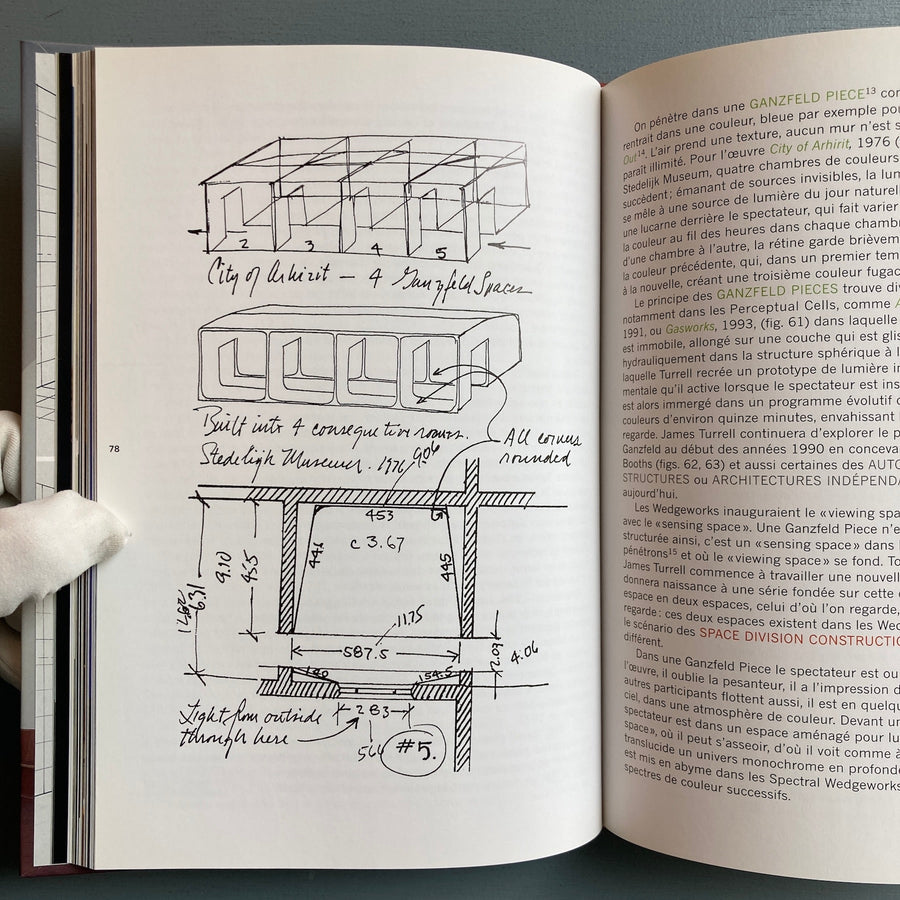 2 3 4 5
City of Arhirit — 4 Ganzfeld Spaces
Built into 4 consequetive rooms.
Stedeligk Museum. 1976
All corners
rounded
9.06
453
c 3.67
441
445
9.10
455
6.31
11.75
587.5
2.09
4.06
154.5
283
Light from outside
through here
#5.
78
On pénètre dans une GANZFELD PIECE¹³ con
rentrait dans une couleur, bleue par exemple pou
Out¹⁴. L'air prend une texture, aucun mur n'est s
paraît illimité. Pour l'œuvre City of Arhirit, 1976 (
Stedelijk Museum, quatre chambres de couleurs
succèdent ; émanant de sources invisibles, la lum
se mêle à une source de lumière du jour naturel
une lucarne derrière le spectateur, qui fait varier
la couleur au fil des heures dans chaque chamb
d'une chambre à l'autre, la rétine garde brièvem
la couleur précédente, qui, dans un premier tem
à la nouvelle, créant une troisième couleur fugac
Le principe des GANZFELD PIECES trouve div
notamment dans les Perceptual Cells, comme A
1991, ou Gasworks, 1993, (fig. 61) dans laquelle
est immobile, allongé sur une couche qui est glis
hydrauliquement dans la structure sphérique à l
laquelle Turrell recrée un prototype de lumière in
mentale qu'il active lorsque le spectateur est ins
est alors immergé dans un programme évolutif d
couleurs d'environ quinze minutes, envahissant
regarde. James Turrell continuera d'explorer le p
Ganzfeld au début des années 1990 en conceva
Booths (figs. 62, 63) et aussi certaines des AUTO
STRUCTURES ou ARCHITECTURES INDÉPENDA
aujourd'hui.
Les Wedgeworks inauguraient le « viewing spa
avec le « sensing space ». Une Ganzfeld Piece n'e
structurée ainsi, c'est un « sensing space » dans l
pénètrons¹⁵ et où le « viewing space » se fond. To
James Turrell commence à travailler une nouvell
donnera naissance à une série fondée sur cette
espace en deux espaces, celui d'où l'on regarde,
regarde : ces deux espaces existent dans les Wed
le scénario des SPACE DIVISION CONSTRUCTIO
différent.
Dans une Ganzfeld Piece le spectateur est ou
l'œuvre, il oublie la pesanteur, il a l'impression d
autres participants flottent aussi, il est en quelqu
ciel, dans une atmosphère de couleur. Devant un
spectateur est dans un espace aménagé pour lu
space », où il peut s'asseoir, d'où il voit comme à
translucide un univers monochrome en profonde
est mis en abyme dans les Spectral Wedgeworks
spectres de couleur successifs.